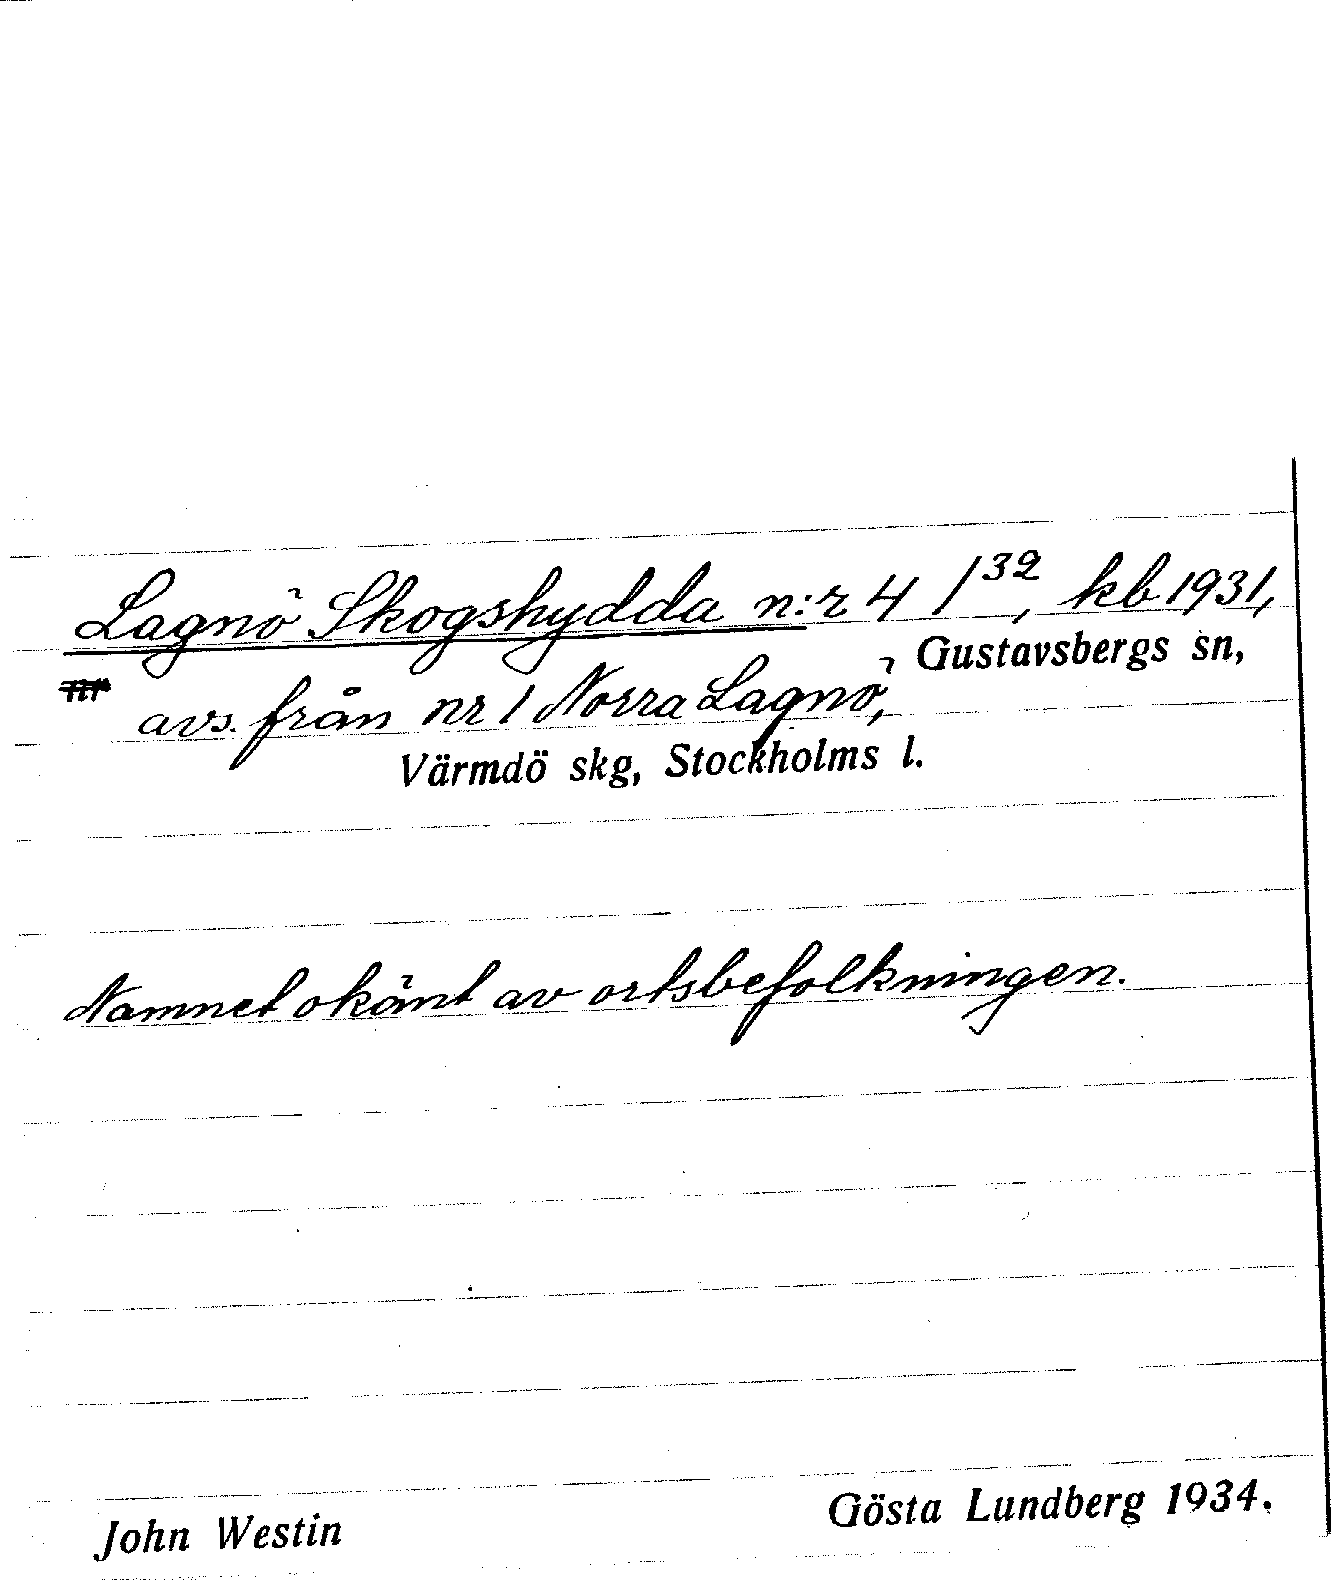 Lagnö Skogshydda n:r 4 1³², kb 1931,
Gustavsbergs sn,
avs. från nr 1 Norra Lagnö,
Värmdö skg, Stockholms l.
Namnet okänt av ortsbefolkningen.
John Westin
Gösta Lundberg 1934.